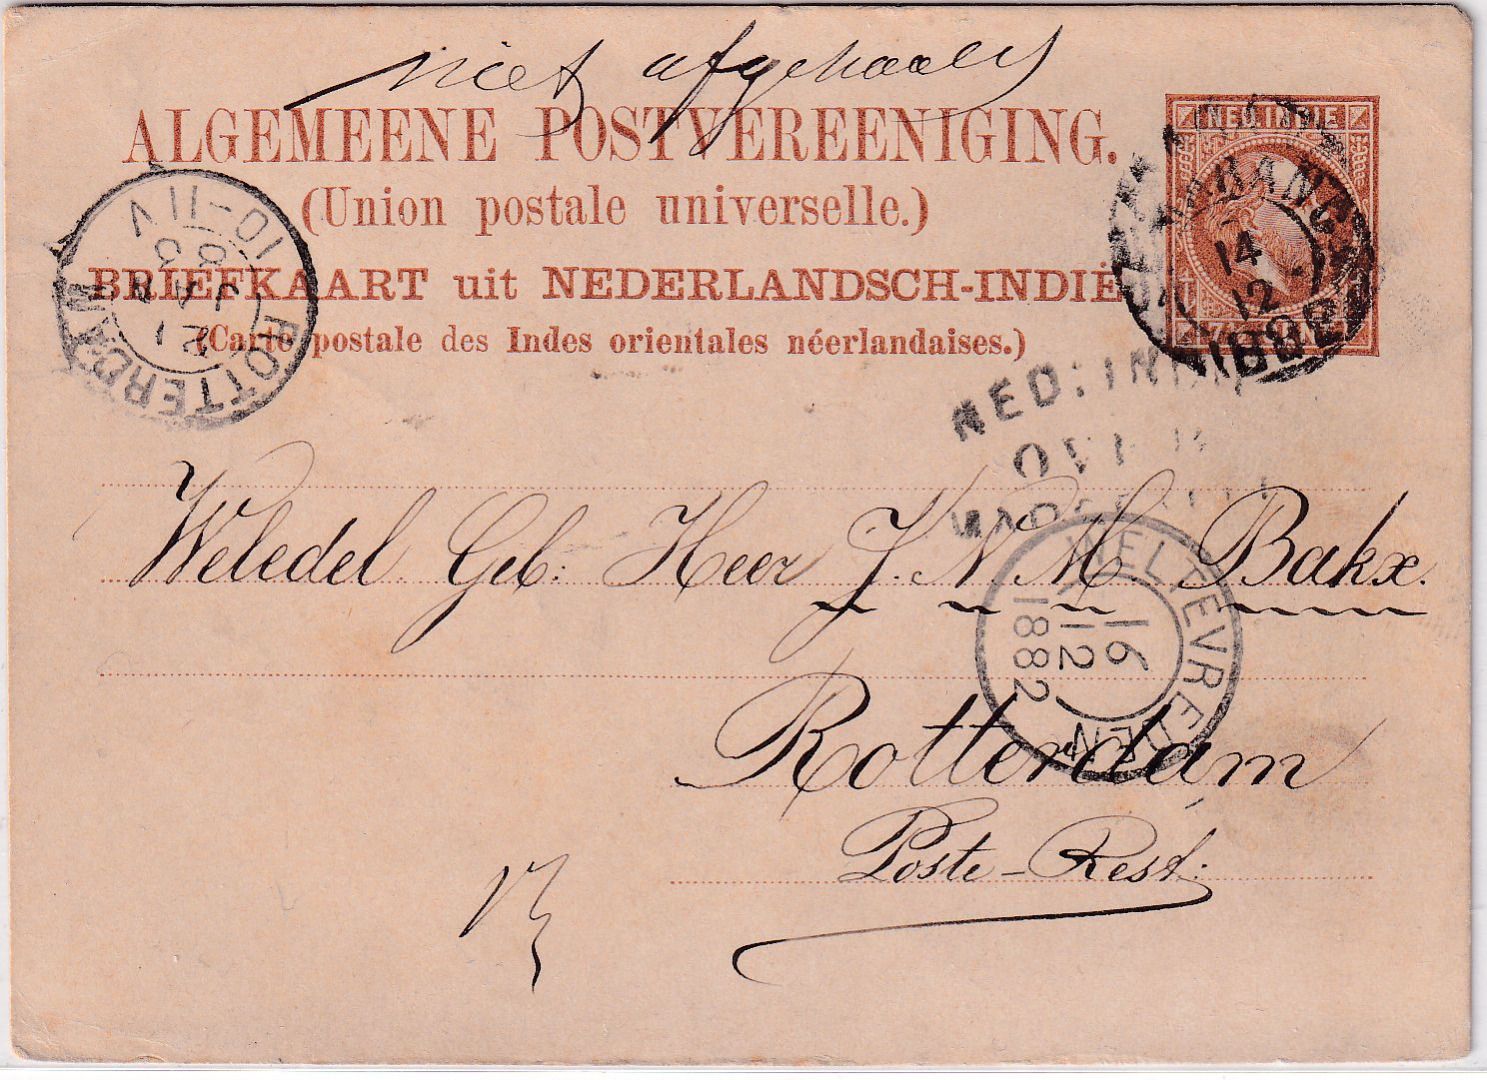 niet afgehaald
ALGEMEENE POSTVEREENIGING.
(Union postale universelle.)
BRIEFKAART uit NEDERLANDSCH-INDIË
(Carte postale des Indes orientales néerlandaises.)
NED. INDIE
14
12
1882
ROTTERDAM
21 JAN
83
10-11V
NED: INDIE
OVER
Weledel Geb: Heer J. N. M. Bakx.
WELTEVREDEN
16
12
1882
Rotterdam
Poste-Rest: